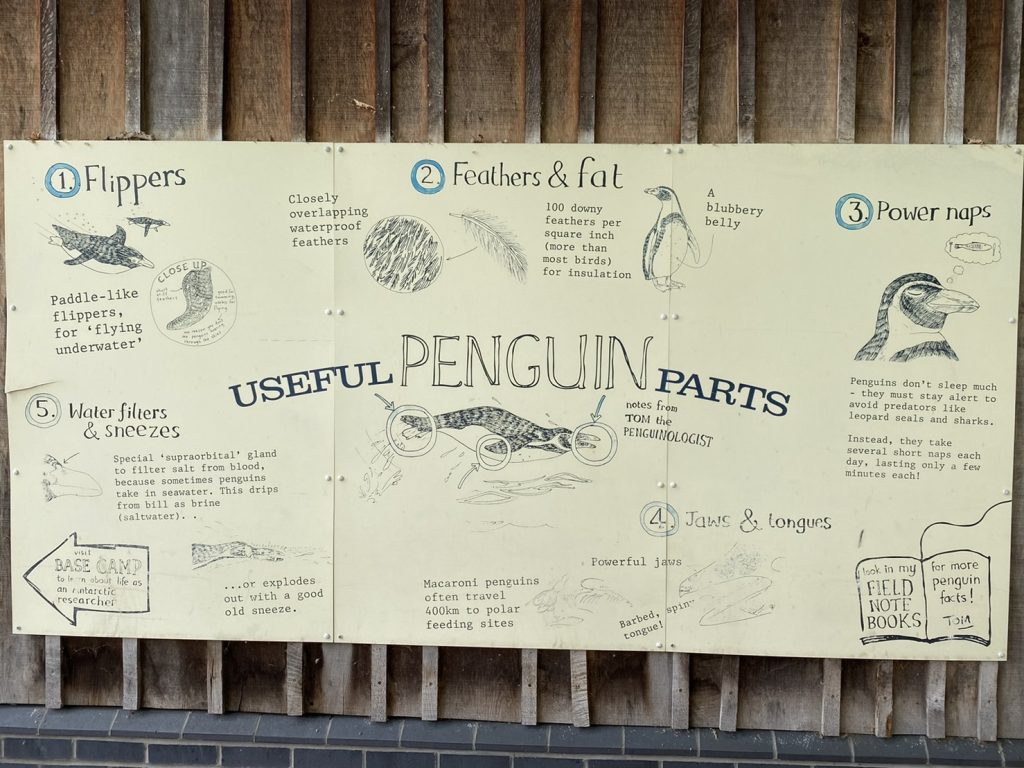 1. Flippers
Paddle-like
flippers,
for 'flying
underwater'
CLOSE UP
2. Feathers & fat
Closely
overlapping
waterproof
feathers
100 downy
feathers per
square inch
(more than
most birds)
for insulation
A
blubbery
belly
3. Power naps
Penguins don't sleep much
- they must stay alert to
avoid predators like
leopard seals and sharks.
Instead, they take
several short naps each
day, lasting only a few
minutes each!
USEFUL PENGUIN PARTS
notes from
TOM the
PENGUINOLOGIST
5. Water filters
& sneezes
Special 'supraorbital' gland
to filter salt from blood,
because sometimes penguins
take in seawater. This drips
from bill as brine
(saltwater). .
...or explodes
out with a good
old sneeze.
visit
BASE CAMP
to learn about life as
an antarctic
researcher
4. Jaws & tongues
Powerful jaws
Macaroni penguins
often travel
400km to polar
feeding sites
Barbed, spin-
tongue!
look in my
FIELD
NOTE
BOOKS
for more
penguin
facts!
TOM